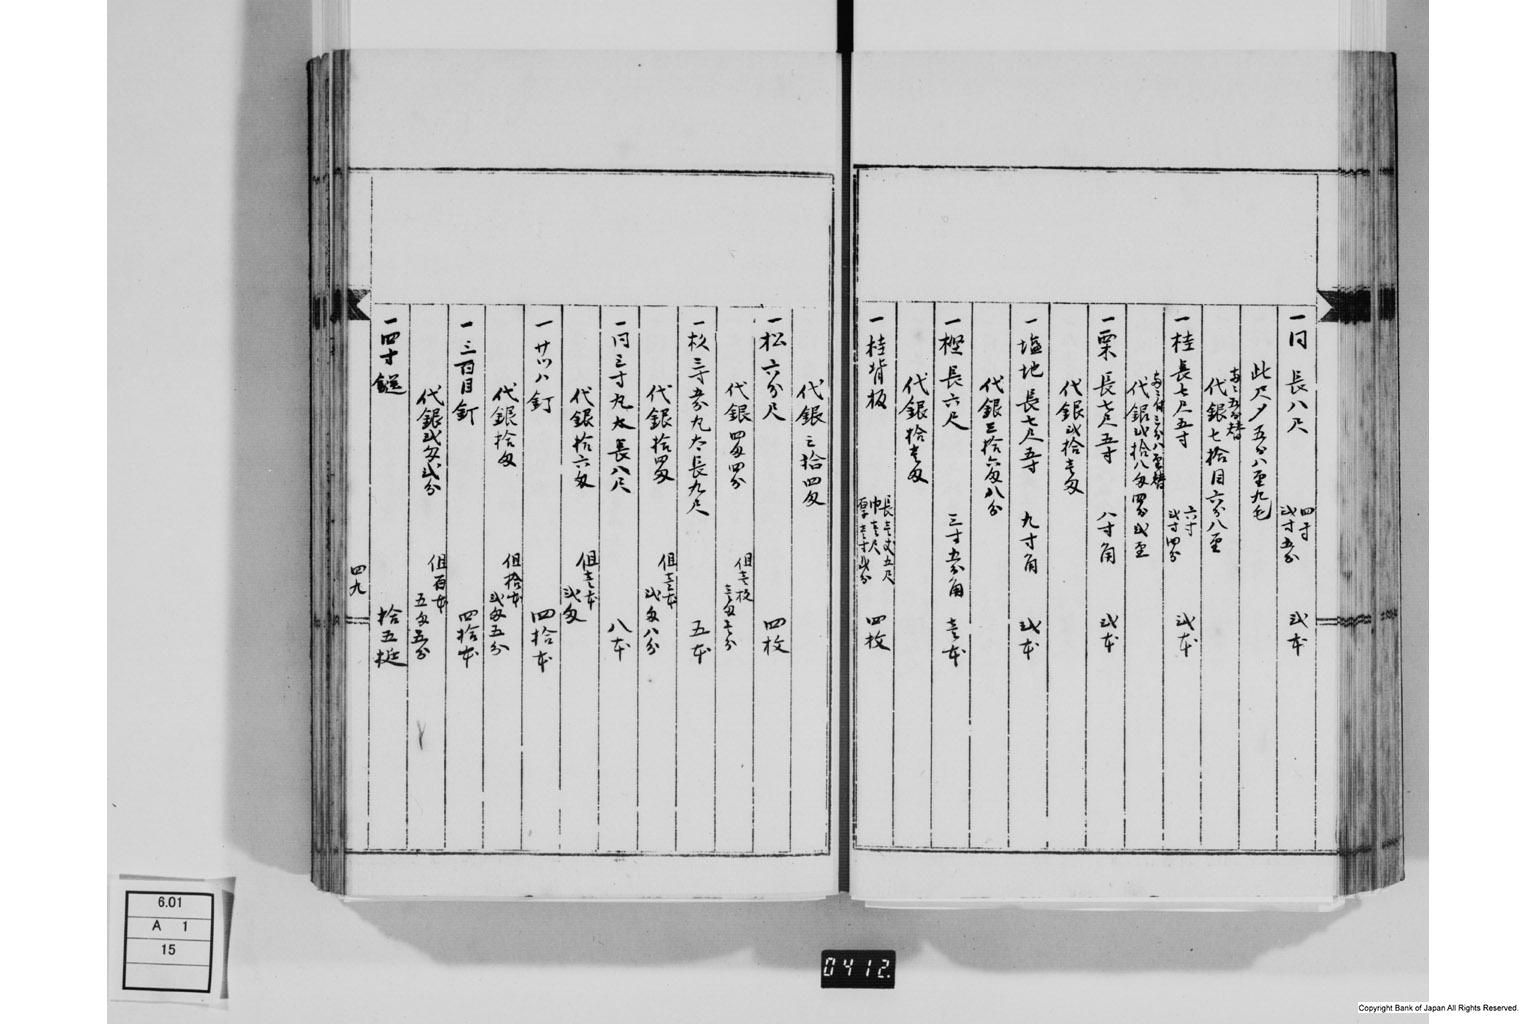 一同 長八尺 四寸 弐寸五分 弐本
此尺〆五分八厘九毛
代銀七拾目六分八厘
一桂長七尺五寸 六寸 弐寸四分 弐本
代銀弐拾八匁四分弐厘
一栗長七尺五寸 八寸角 弐本
代銀弐拾壱匁
一塩地長七尺五寸 九寸角 弐本
代銀三拾六匁八分
一樫長六尺 三寸五分角 壱本
代銀拾壱匁
一桂背板 長壱丈五尺 巾壱尺 厚壱寸弐分 四枚
代銀三拾四匁
一松六分尺 四枚
代銀四匁四分 但壱枚 壱匁壱分
一杉三寸五分丸太長九尺 五本
代銀拾四匁 但壱本 弐匁八分
一同三寸丸太長八尺 八本
代銀拾六匁 但壱本 弐匁
一廿八釘 四拾本
代銀拾匁 但拾本 弐匁五分
一三百目釘 四拾本
代銀弐匁弐分 但百本 五匁五分
一四寸鎹 拾五梃
四九
6.01
A 1
15
0412.
Copyright Bank of Japan All Rights Reserved.